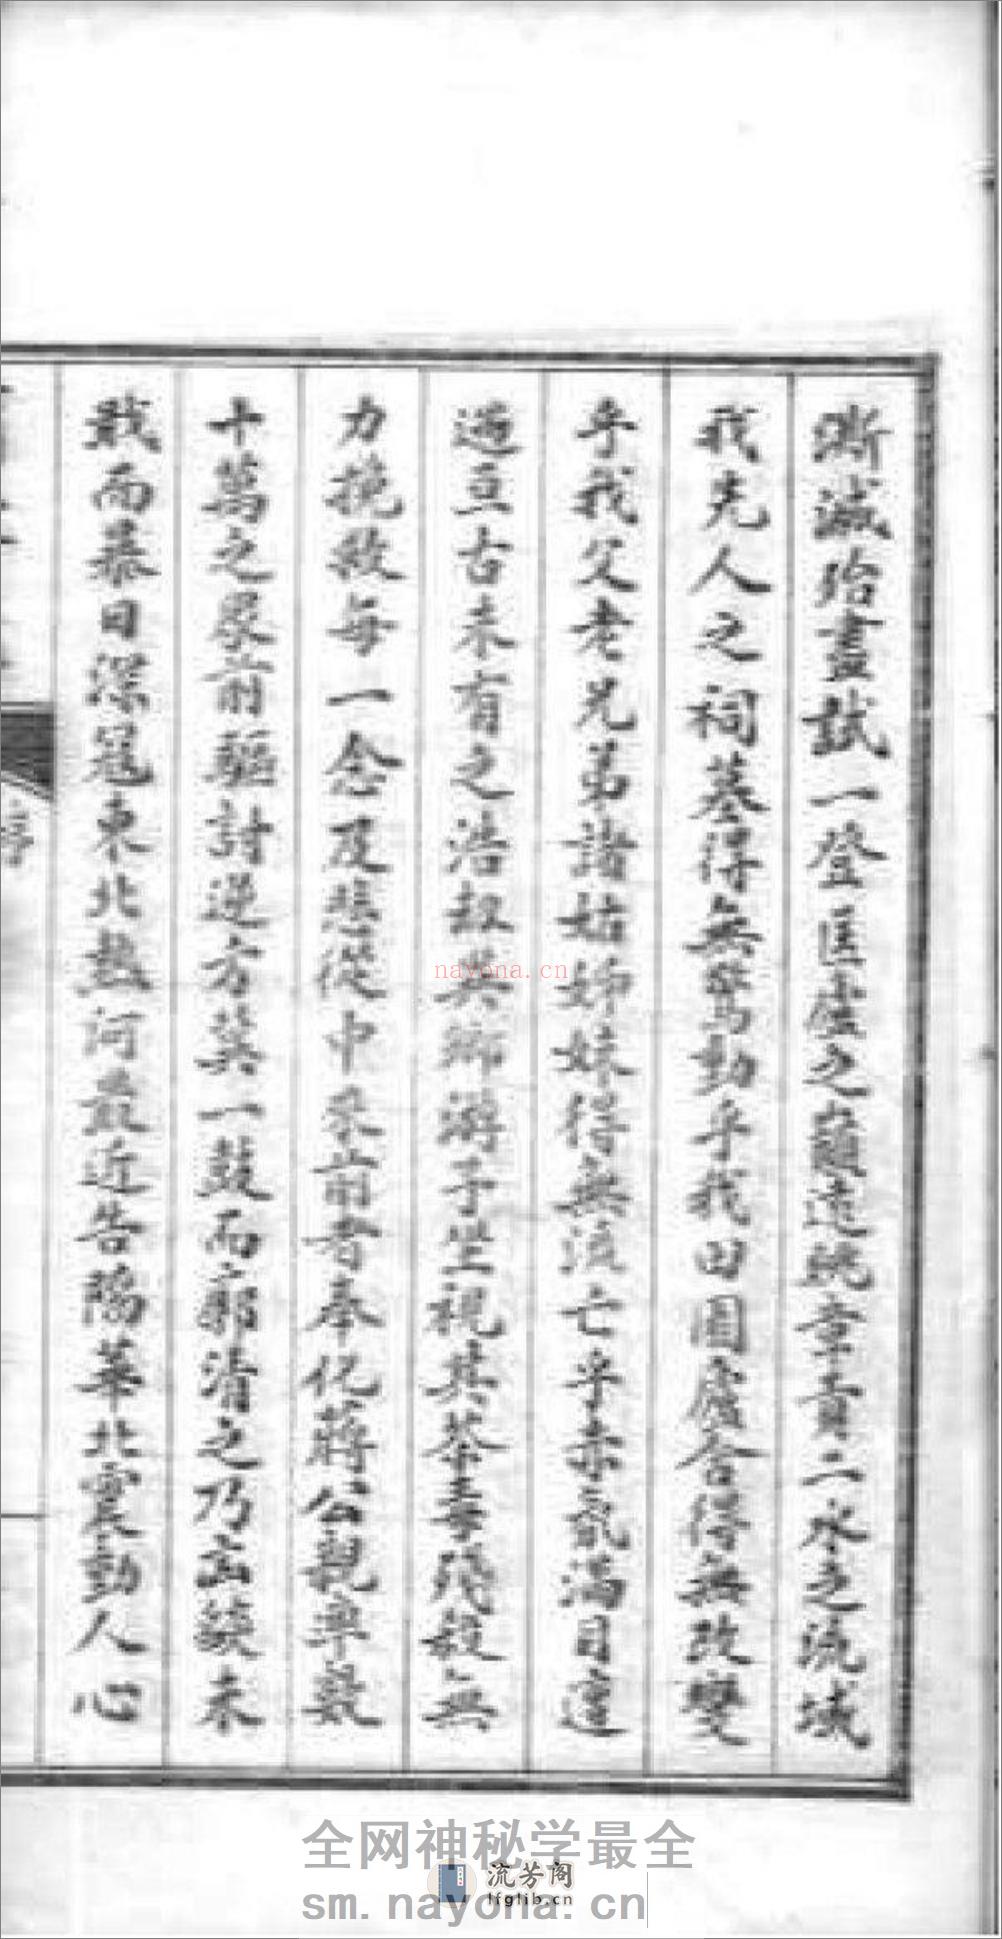 澌滅殆盡試一登匡廬之巔遠眺章貢二水之流域
我先人之祠墓得無驚動乎我田園廬舍得無改變
乎我父老兄弟諸姑姊妹得無流亡乎赤氛滿目達
遁亘古未有之浩劫與鄉游手坐視其荼毒殘殺無
力挽救每一念及悲從中來前者奉化蔣公親率數
十萬之眾前驅討逆方冀一鼓而廓清之乃玄燄未
戢而暴日深寇東北熱河最近告陷華北震動人心
序
nayona.cn
全网神秘学最全
流芳阁
lfglib.cn
sm.nayona.cn